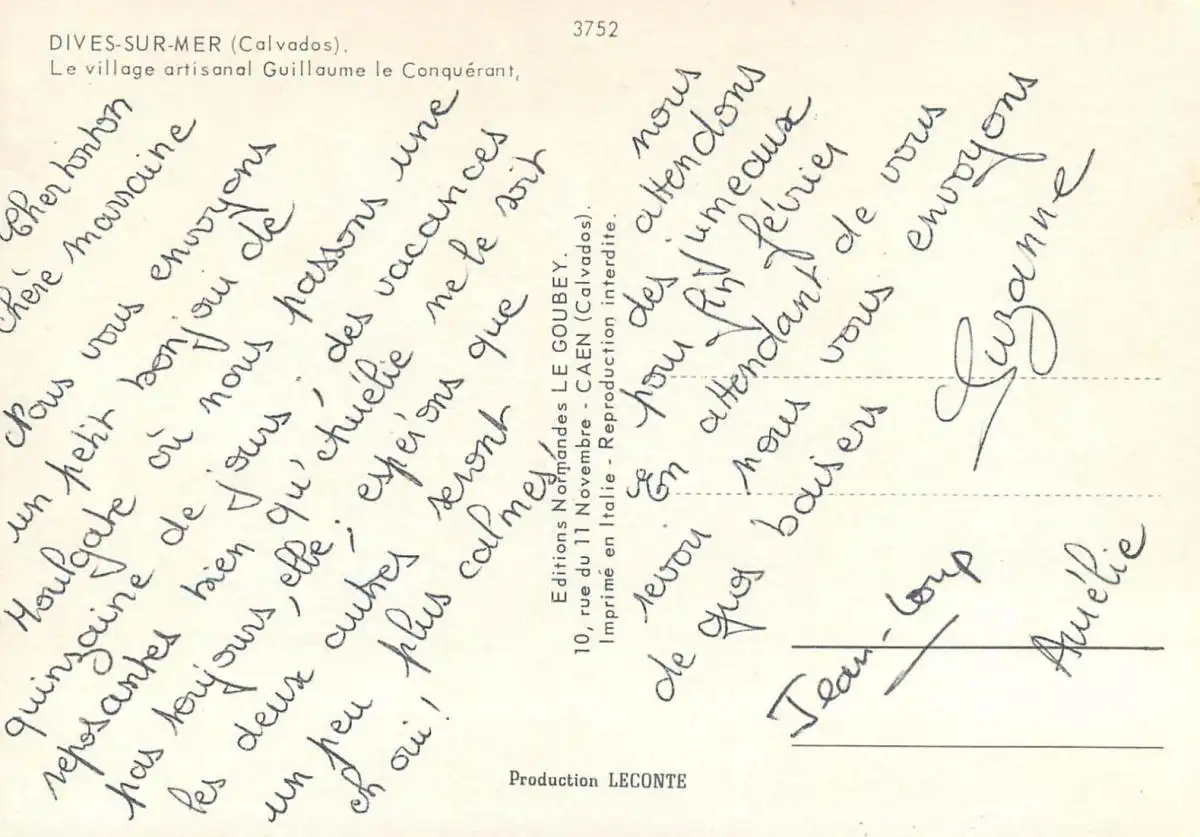 3752
DIVES-SUR-MER (Calvados).
Le village artisanal Guillaume le Conquérant,
Cher tonton
Chère marraine
Nous vous envoyons
un petit bonjour de
Houlgate où nous passons une
quinzaine de jours, des vacances
reposantes bien qu'Amélie ne le soit
pas toujours, elle ; espérons que
les deux autres seront
un peu plus calmes,
eh oui !
nous
attendons
des jumeaux
pour fin février
En attendant de vous
revoir nous vous envoyons
de gros baisers
Suzanne
Jean-Loup
Amélie
Editions Normandes LE GOUBEY.
10, rue du 11 Novembre - CAEN (Calvados).
Imprimé en Italie - Reproduction interdite.
Production LECONTE